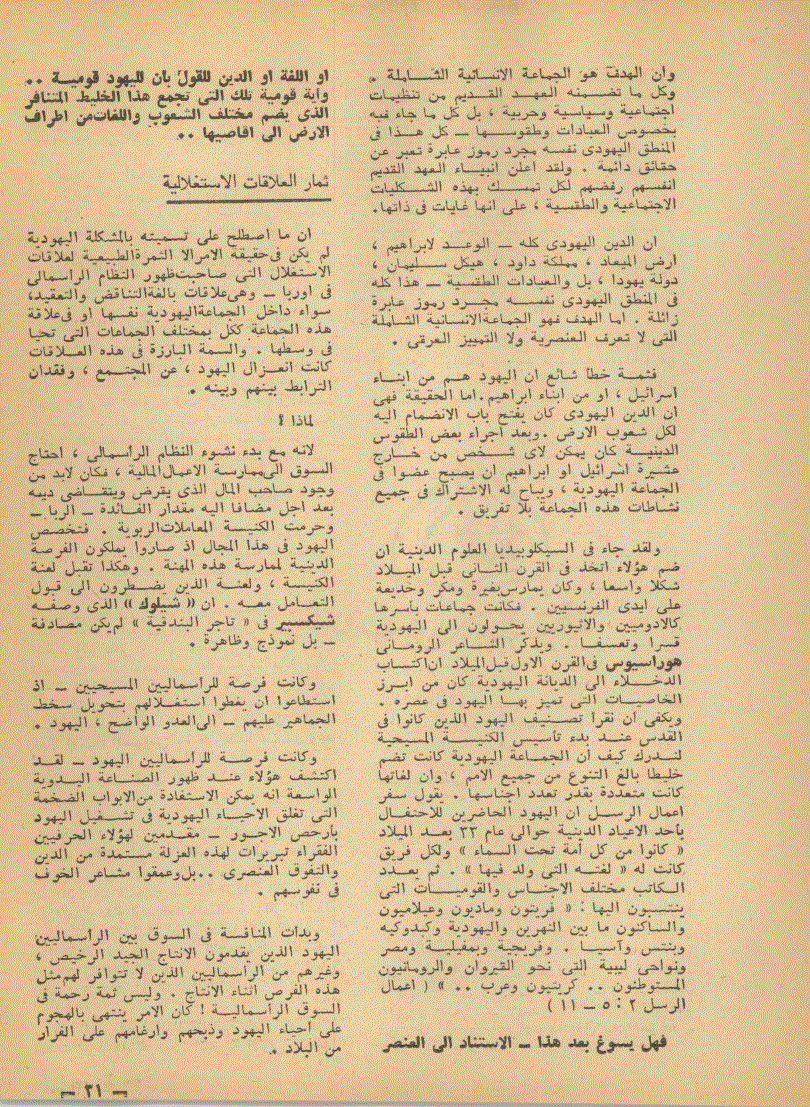 وان الهدف هو الجماعة الانسانية الشـاملة .
وكل ما تضـمنه العهـد القديم من تنظيمات
اجتماعية وسياسية وحربية ، بل كل ما جاء فيه
بخصوص العبادات وطقوسـها ــ كل هـذا فى
المنطق اليهودى نفسه مجرد رموز عابرة تعبر عن
حقائق دائمة . ولقد اعلن انبيـاء العهد القديم
انفسهم رفضهم لكل تمسـك بهذه الشـكليات
الاجتماعية والطقسية ، على انها غايات فى ذاتها.
ان الدين اليهودى كله ــ الوعـد لابراهيم ،
ارض الميعاد ، مملكة داود ، هيكل سـليمان ،
دولة يهودا ، بل والعبادات الطقسية ــ هذا كله
فى المنطق اليهودى نفسـه مجـرد رموز عابرة
زائلة . اما الهدف فهو الجماعة الانسانية الشاملة
التى لا تعرف العنصرية ولا التمييز العرقى .
فثمـة خطأ شائع ان اليهود هـم من ابنـاء
اسرائيل ، او من ابناء ابراهيم. اما الحقيقة فهى
ان الدين اليهودى كان يفتح باب الانضمام اليه
لكل شعوب الارض . وبعد اجراء بعض الطقوس
الدينيـة كان يمكن لاى شـخص من خـارج
عشيرة اسرائيل او ابراهيم ان يصبح عضوا فى
الجماعة اليهودية ، ويباح له الاشتراك فى جميع
نشاطات هذه الجماعة بلا تفريق .
ولقد جاء فى السيكلوبيديا العلوم الدينية ان
ضم هؤلاء اتخذ فى القرن الثـانى قبل الميـلاد
شكلا واسعا ، وكان يمارس بغيرة ومكر وخديعة
على ايدى الفرنسيين . فكانت جماعات بأسرها
كالادوميين والاثيوريين يحـولون الى اليهودية
قسرا وتعسفـا . ويذكر الشاعر الرومـانى
هوراسيوس فى القرن الاول قبل الميلاد ان اكتساب
الدخـلاء الى الديانة اليهودية كان من ابـرز
الخاصيـات التى تميز بهـا اليهود فى عصره .
ويكفى ان نقرأ تصـنيف اليهود الذين كانوا فى
القدس عنـد بدء تأسيس الكنيسـة المسيحية
لنـدرك كيف أن الجمـاعة اليهودية كانت تضم
خليطا بالغ التنوع من جميع الامم ، وان لغاتها
كانت متعددة بقدر تعدد اجناسها . يقول سفر
اعمال الرسـل ان اليهود الحاضرين للاحتفـال
بأحد الاعياد الدينية حوالى عام ٣٣ بعـد الميلاد
« كانوا من كل أمة تحت السماء » ولكل فريق
كانت له « لغتـه التى ولد فيها » . ثم يعـدد
الكاتب مختلف الاجنـاس والقوميـات التى
ينتسبون اليها : « فريتون وماديون وعيلاميون
والساكنون ما بين النهرين واليهودية وكبدوكيه
وبنتس وآسيـا . وفريجية وبمفيلية ومصر
ونواحى ليبية التى نحو القيروان والرومانيون
المستوطنون .. كريتيون وعرب .. » ( اعمال
الرسل ٢ : ٥ ــ ١١ )
فهل يسوغ بعد هذا ــ الاستناد الى العنصر
او اللغة او الدين للقول بأن لليهود قوميـة ..
وأية قومية تلك التى تجمع هذا الخليط المتنافر
الذى يضم مختلف الشعوب واللغات من اطراف
الارض الى اقاصيها ..
ثمار العلاقات الاستغلالية
ان ما اصطلح على تسميته بالمشكلة اليهودية
لم يكن فى حقيقة الامر الا الثمرة الطبيعية لعلاقات
الاستغلال التى صاحبت ظهور النظام الرأسمالى
فى اوربا ــ وهى علاقات بالغة التناقض والتعقيد،
سواء داخل الجماعة اليهودية نفسها او فى علاقة
هذه الجماعة ككل بمختلف الجماعات التى تحيا
فى وسطها . والسمة البارزة فى هذه العـلاقات
كانت انعـزال اليهود ، عن المجتمـع ، وفقدان
الترابط بينهم وبينه .
لماذا ؟
لانه مع بدء نشوء النظام الرأسمالى ، احتاج
السوق الى ممارسة الاعمال المالية ، فكان لابد من
وجود صاحب المال الذى يقرض ويتقـاضى دينه
بعد اجل مضافا اليه مقدار الفـائدة ــ الربا ــ
وحرمت الكنيسة المعاملات الربوية . فتخصص
اليهود فى هذا المجال اذ صاروا يملكون الفرصة
الدينية لممارسة هذه المهنة . وهكذا تقبل لعنة
الكنيسة ، ولعنة الذين يضـطرون الى قبـول
التعـامل معـه . ان « شيلوك » الذى وصفـه
شيكسبير فى « تاجر البندقية » لم يكن مصادفة
ــ بل نموذج وظاهرة .
وكانت فرصة للرأسماليين المسيحيين ــ اذ
استطاعوا ان يغطوا استغلالهم بتحويل سخط
الجماهير عليهم ــ الى العدو الواضح ، اليهود .
وكانت فرصـة للرأسماليين اليهود ــ لقـد
اكتشف هؤلاء عنـد ظهور الصنـاعة اليـدوية
الواسعة انه يمكن الاستفادة من الابواب الضخمة
التى تغلق الاحيـاء اليهودية فى تشـغيل اليهود
بأرخص الاجـور ــ مقـدمين لهؤلاء الحرفيين
الفقراء تبريرات لهذه العزلة مستمدة من الدين
والتفوق العنصرى .. بل وعمقوا مشاعر الخوف
فى نفوسهم .
وبدأت المنافسة فى السوق بين الرأسماليين
اليهود الذين يقدمون الانتاج الجيد الرخيص ،
وغيرهم من الرأسماليين الذين لا تتوافر لهم مثل
هذه الفرص أثناء الانتاج . وليس ثمة رحمة فى
السوق الرأسماليـة ! كان الامر ينتهى بالهجوم
على أحياء اليهود وذبحهم وارغامهم على الفرار
من البلاد .
ــ ٢١ ــ